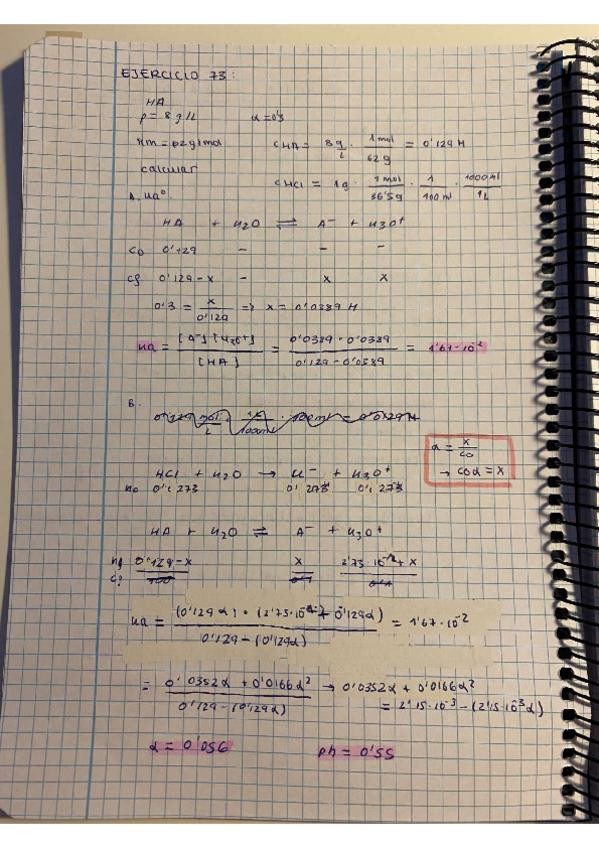 EJERCICIO 73:
HA
ρ = 8 g/L α = 0'3
Mm = 62 g/mol CHA = 8g/L · 1 mol/62 g = 0'129 M
calcular CHCl = 1g · 1 mol/36'5g · 1/100 ml · 1000 ml/1L
A. Ka
HA + H2O ⇌ A- + H3O+
C0 0'129 - - -
Cf 0'129-x - x x
0'3 = x/0'129 => x = 0'0389 M
Ka = [A-][H3O+]/[HA] = 0'0389 · 0'0389/0'129 - 0'0389 = 1'67·10-2
B.
α = x/C0
→ C0α = x
HCl + H2O → Cl- + H3O+
n0 0'273 0'273 0'273
HA + H2O ⇌ A- + H3O+
0'129-x x 2'73·10-1 + x
Ka = (0'129α) · (2'73·10-1 + 0'129α)/0'129 - (0'129α) = 1'67·10-2
= 0'0352α + 0'0166α2/0'129 - (0'129α) → 0'0352α + 0'0166α2
= 2'15·10-3 - (2'15·10-3α)
α = 0'056 ph = 0'55